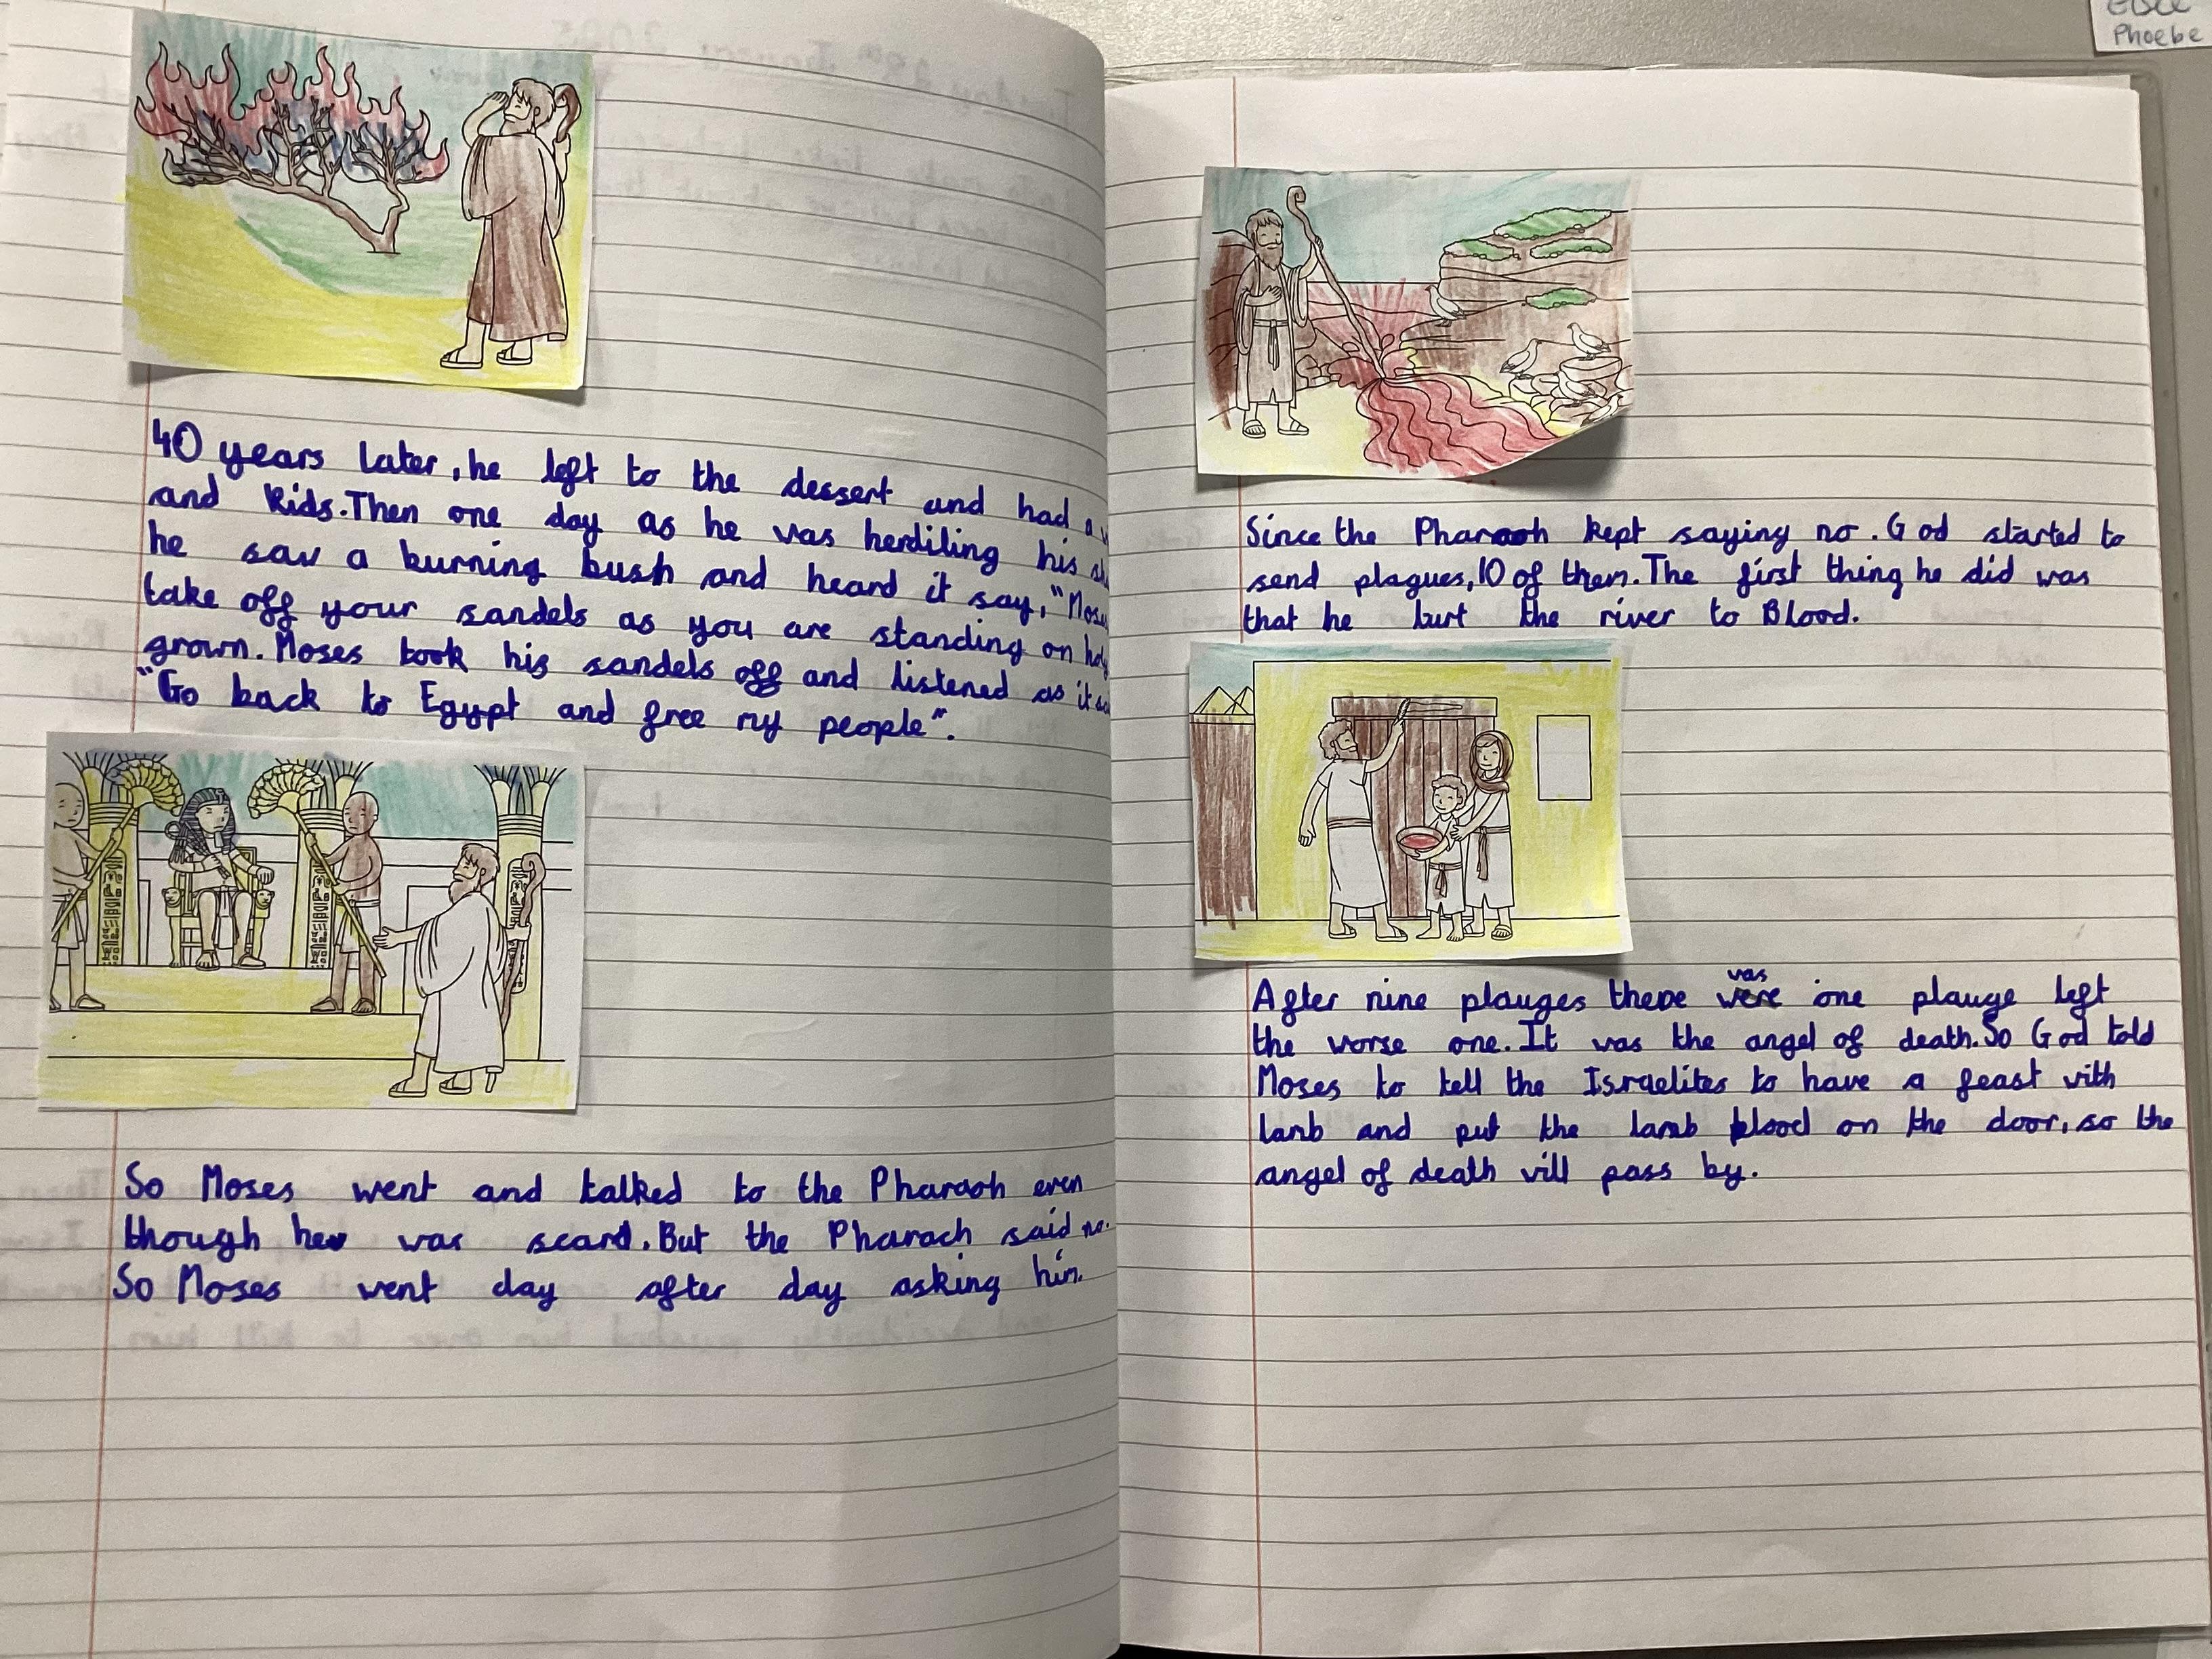 40 years later, he left to the dessert and had a
and kids. Then one day as he was herdiling his
he saw a burning bush and heard it say, "Mose
take off your sandels as you are standing on holy
grown. Moses took his sandels off and listened as it
"Go back to Egypt and free my people".
So Moses went and talked to the Pharaoh even
though he was scard. But the Pharaoh said no.
So Moses went day after day asking him.
Phoebe
Since the Pharaoh kept saying no. God started to
send plagues, 10 of them. The first thing he did was
that he turt the river to Blood.
After nine plauges there was one plauge left
the worse one. It was the angel of death. So God told
Moses to tell the Israelites to have a feast with
lamb and put the lamb blood on the door, so the
angel of death will pass by.